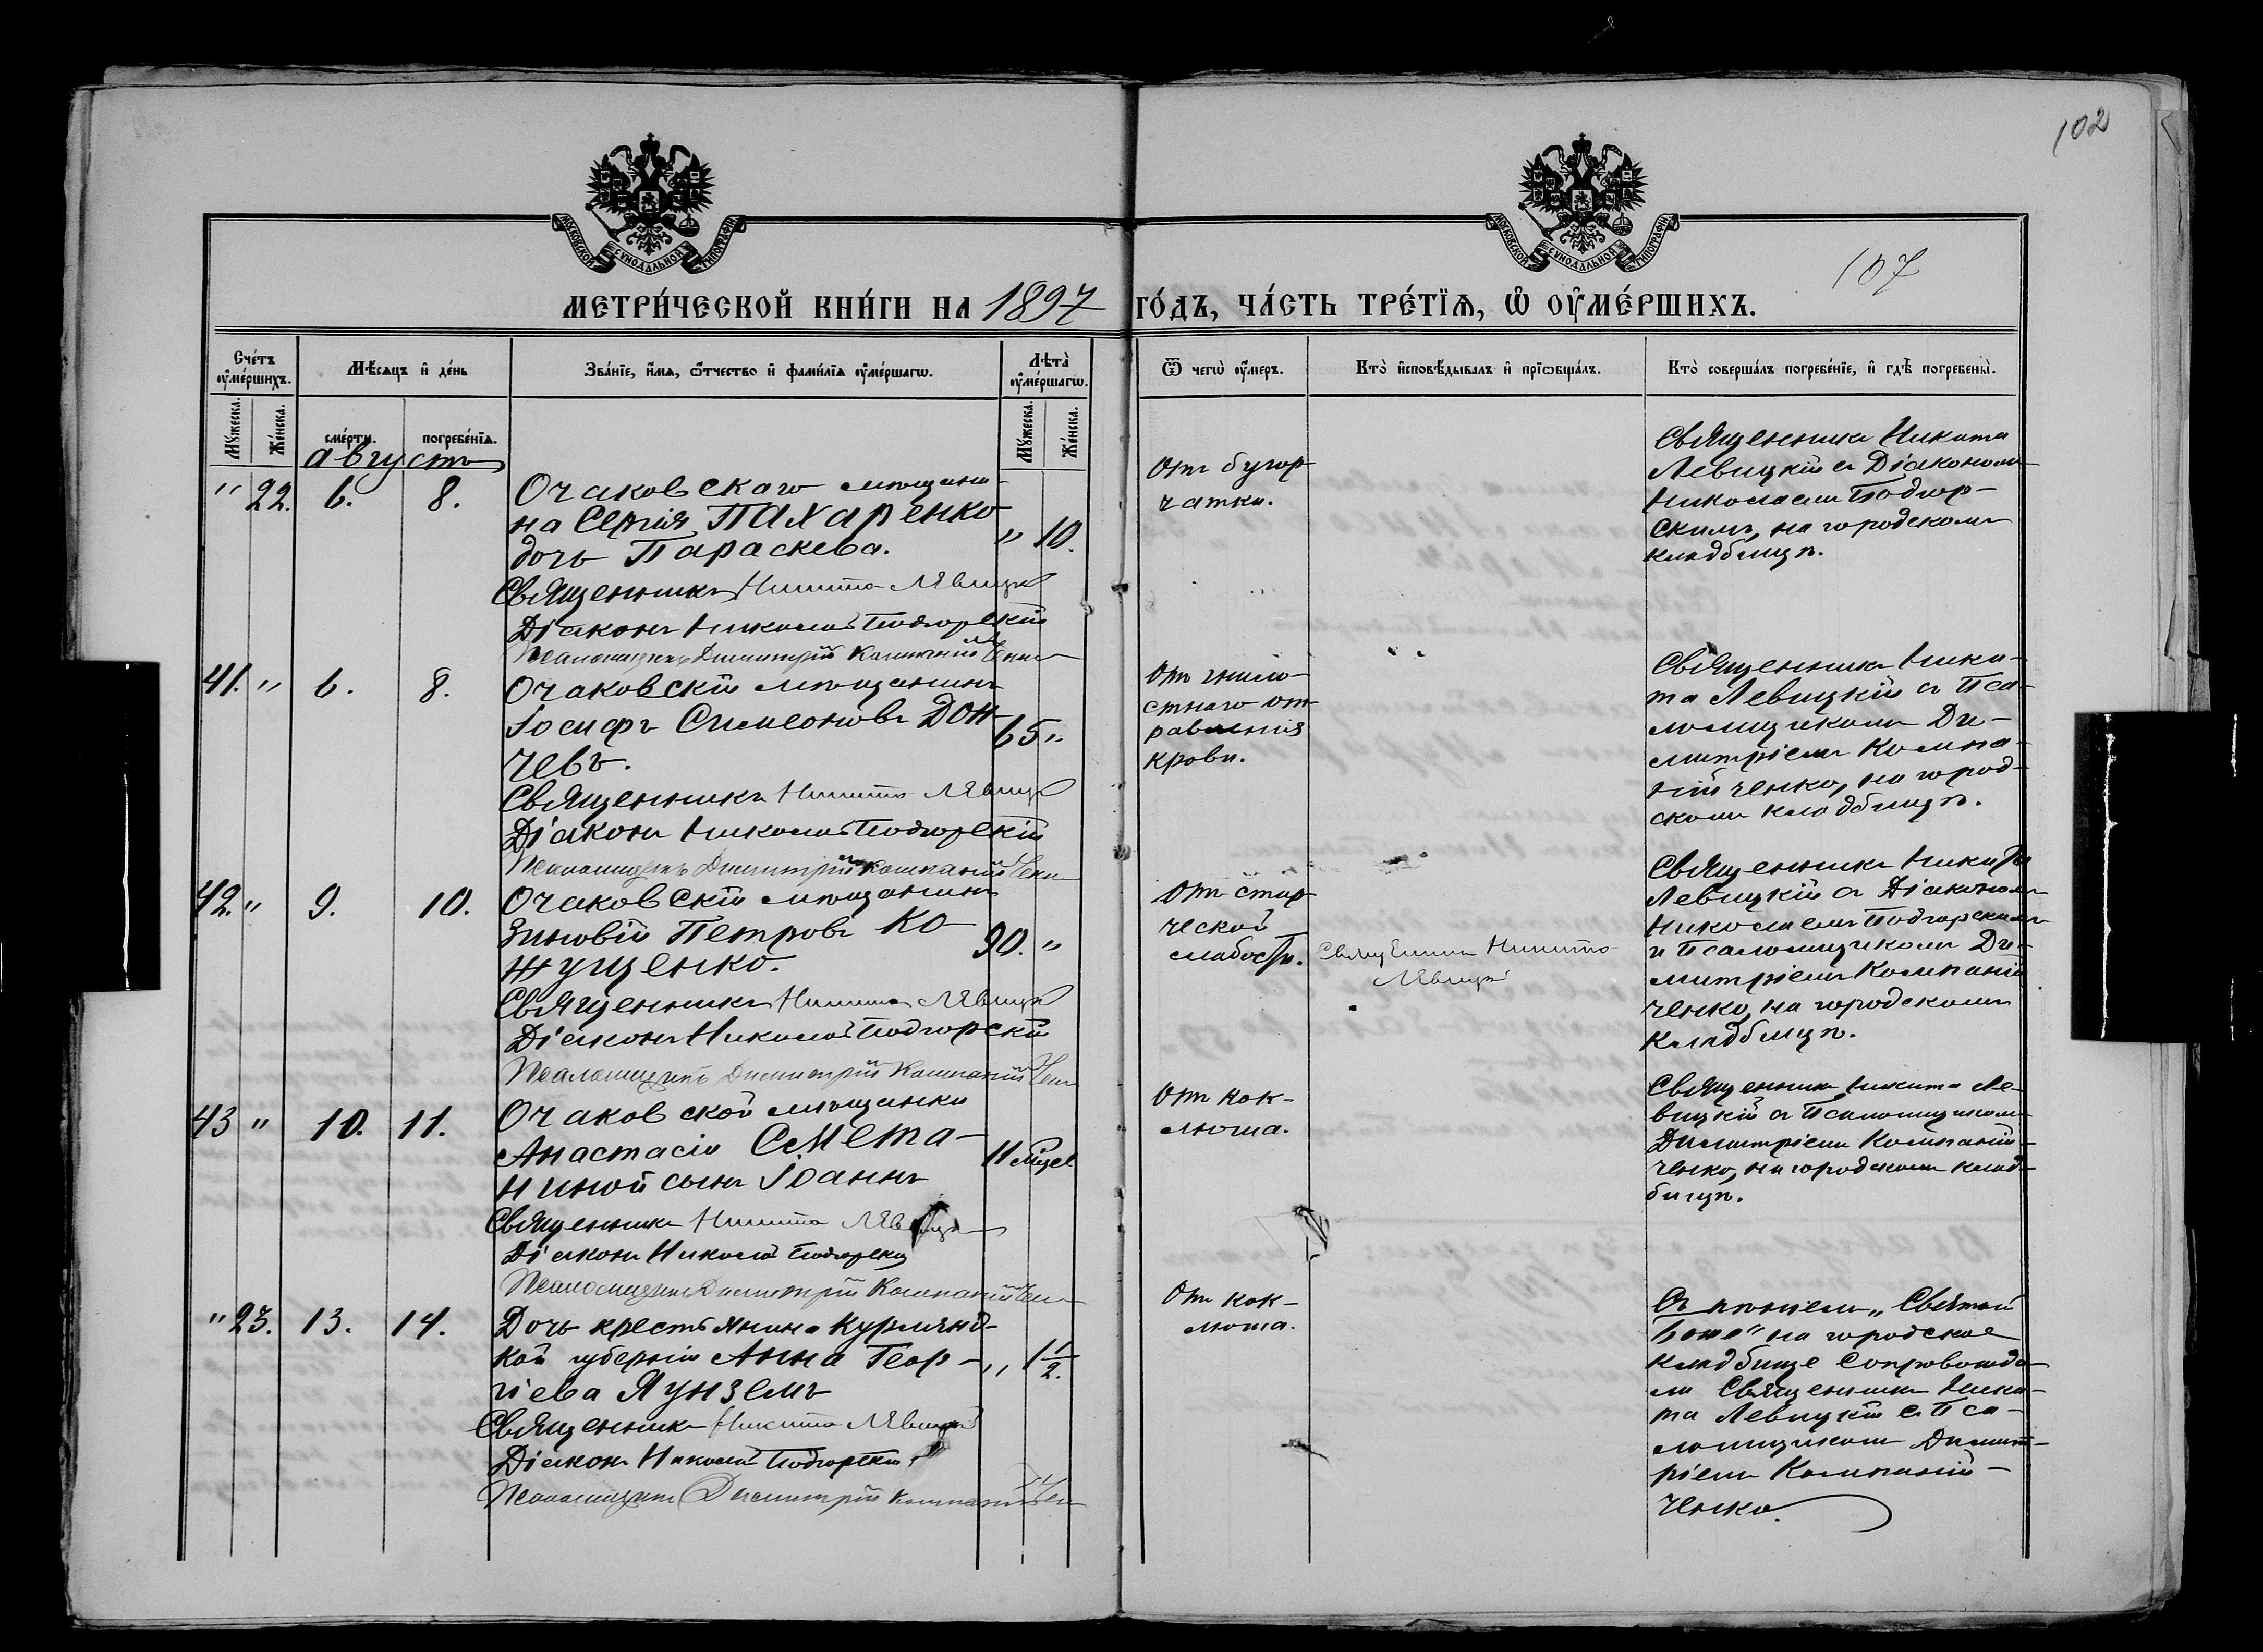 102
107
МОСКОВСКОЙ СУНОДАЛЬНОЙ ТИПОГРАФІИ
МОСКОВСКОЙ СУНОДАЛЬНОЙ ТИПОГРАФІИ
МЕТРИ́ЧЕСКОЙ КНИ́ГИ НА 1897 ГО́ДЪ, ЧА́СТЬ ТРЕ́ТЇѦ, Ѡ ОУ҆МЕ́РШИХЪ.
Сче́тъ оу҆ме́ршихъ.
Мѣ́сѧцъ и҆ де́нь
Зва́нїе, и҆́мѧ, ѻ҆́тчество и҆ фами́лїѧ оу҆ме́ршагѡ.
Лѣта̀ оу҆ме́ршагѡ.
Ѿ чегѡ̀ оу҆́меръ.
Кто̀ и҆сповѣ́дывалъ и҆ прїѡбща́лъ.
Кто̀ соверша́лъ погребе́нїе, и҆ гдѣ̀ погребены̀.
Мꙋ́жеска.
Же́нска.
сме́рти.
погребе́нїѧ.
Мꙋ́жеска.
Же́нска.
августъ
" 22. 6. 8.
Очаковскаго мѣщани-
на Сергія Пахаренко
дочь Параскева.
" 10.
Священникъ Никита Левицкій
Діаконъ Николай Подгорскій
Псаломщикъ Димитрій Компанійченко
Отъ бугор-
чатки.
Священникъ Никита
Левицкій съ Діакономъ
Николаемъ Подгор-
скимъ, на городскомъ
кладбищѣ.
41. " 6. 8.
Очаковскій мѣщанинъ
Іосифъ Симеоновъ Дон-
чевъ.
65 "
Священникъ Никита Левицкій
Діаконъ Николай Подгорскій
Псаломщикъ Димитрій Компанійченко
Отъ гнило-
стнаго от-
равленія
крови.
Священникъ Ники-
та Левицкій съ Пса-
ломщикомъ Ди-
митріемъ Компа-
нійченко, на город-
скомъ кладбищѣ.
42. " 9. 10.
Очаковскій мѣщанинъ
Зиновій Петровъ Ко-
жущенко.
90. "
Священникъ Никита Левицкій
Діаконъ Николай Подгорскій
Псаломщикъ Димитрій Компанійченко
Отъ стар-
ческой
слабости.
Священникъ Никита
Левицкій
Священникъ Никита
Левицкій съ Діакономъ
Николаемъ Подгорскимъ
и Псаломщикомъ Ди-
митріемъ Компаній-
ченко, на городскомъ
кладбищѣ.
43 " 10. 11.
Очаковской мѣщанки
Анастасіи Смета-
ниной сынъ Іоаннъ
11 мѣсе
Священникъ Никита Левицкій
Діаконъ Николай Подгорскій
Псаломщикъ Димитрій Компанійченко
Отъ кок-
люша.
Священникъ Никита Ле-
вицкій съ Псаломщикомъ
Димитріемъ Компаній-
ченко, на городскомъ клад-
бищѣ.
" 23. 13. 14.
Дочь крестьянина Курлянд-
кой губерніи Анна Геор-
гіева Яунземъ
" 1 1/2.
Священникъ Никита Левицкій
Діаконъ Николай Подгорскій
Псаломщикъ Димитрій Компанійченко
Отъ кок-
люша.
Съ пѣніемъ „Святый
Боже" на городское
кладбище сопровожда-
ли Священникъ Ники-
та Левицкій съ Пса-
ломщикомъ Димит-
ріемъ Компаній-
ченко.